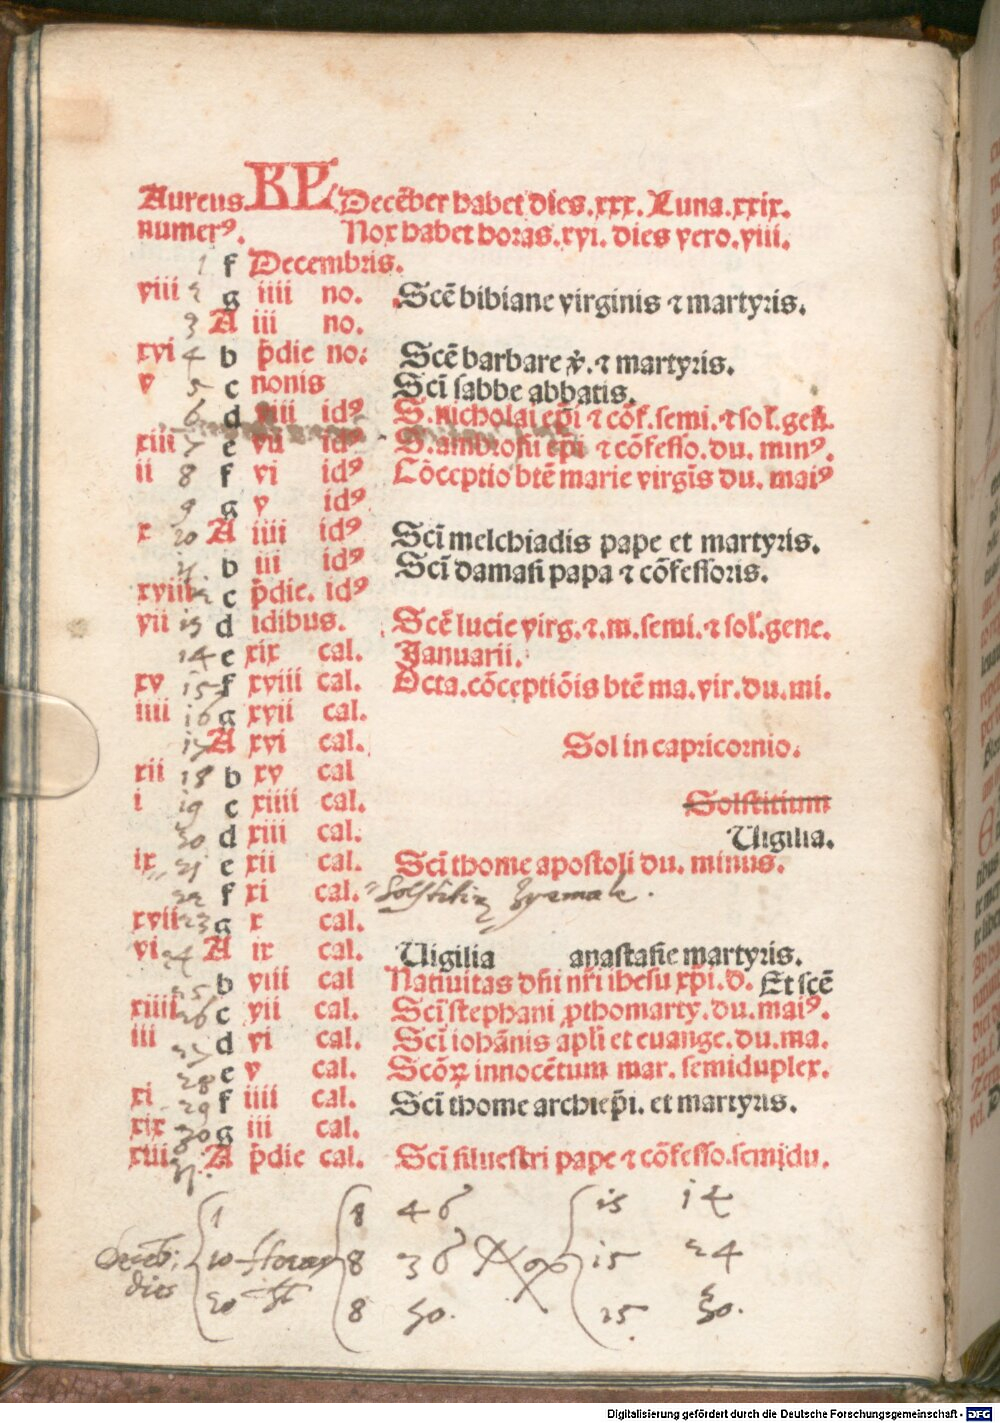 Aureus KL Decēber habet dies.xxx. Luna.xxix.
numerꝰ. Nox habet horas.xvi. dies vero.viii.
1 f Decembris.
viii 2 g iiii no. Scē bibiane virginis ⁊ martyris.
3 A iii no.
xvi 4 b p̄die no: Scē barbare v̄. ⁊ martyris.
v 5 c nonis Sci̅ sabbe abbatis.
6 d viii idꝰ S. nicholai ep̄i ⁊ cōf. semi. ⁊ sol. gen̄.
xiii 7 e vii idꝰ S. ambrosii ep̄i ⁊ cōfesso. du. minꝰ.
ii 8 f vi idꝰ Cōceptio btē marie virgi̅s du. maiꝰ
9 g v idꝰ
x 10 A iiii idꝰ Sci̅ melchiadis pape et martyris.
11 b iii idꝰ Sci̅ damasi papa ⁊ cōfessoris.
xviii 12 c p̄die. idꝰ
vii 13 d idibus. Scē lucie virg. ⁊. m. semi. ⁊ sol. gene.
14 e xix cal. Januarii.
xv 15 f xviii cal. Octa. cōceptiōis btē ma. vir. du. mi.
iiii 16 g xvii cal.
17 A xvi cal. Sol in capricornio.
xii 18 b xv cal
i 19 c xiiii cal. Solstitium
20 d xiii cal. Uigilia.
ix 21 e xii cal. Sci̅ thome apostoli du. minus.
22 f xi cal. Solstitiū hyemale.
xvii 23 g x cal.
vi 24 A ix cal. Uigilia anastasie martyris.
25 b viii cal Natiuitas dn̄i nr̄i ihesu xp̄i. d. Et scē
xiiii 26 c vii cal. Sci̅ stephani ꝓthomarty. du. maiꝰ.
iii 27 d vi cal. Sci̅ iohānis apl̄i et euange. du. ma.
28 e v cal. Scōꝝ innocētum mar. semiduplex.
xi 29 f iiii cal. Sci̅ thome archiep̄i. et martyris.
xix 30 g iii cal.
xiii 31. A p̄die cal. Sci̅ siluestri pape ⁊ cōfesso. semidu.
1 8 46 15 14
Deceb: dies 10 horas 8 36 15 24
20 8 30. 15 30.
Digitalisierung gefördert durch die Deutsche Forschungsgemeinschaft - DFG